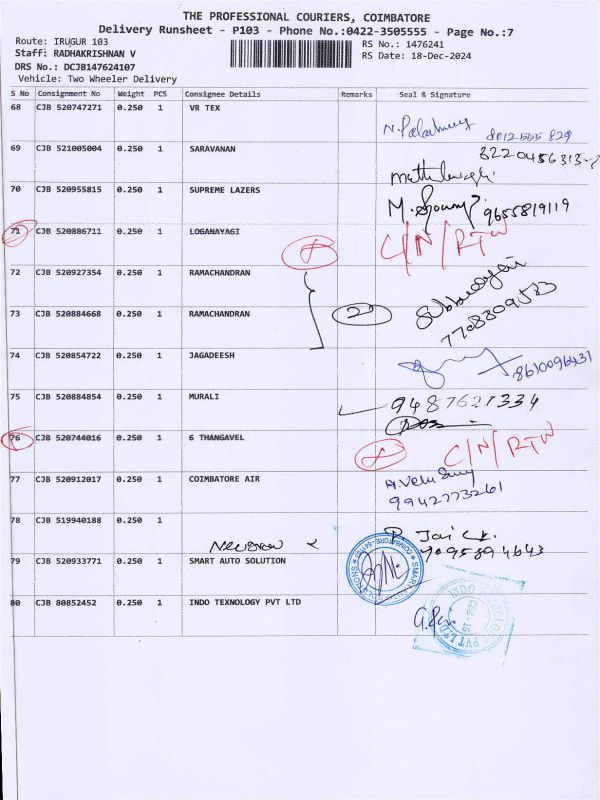 THE PROFESSIONAL COURIERS, COIMBATORE
Delivery Runsheet - P103 - Phone No.:0422-3505555 - Page No.:7
Route: IRUGUR 103
RS No.: 1476241
Staff: RADHAKRISHNAN V
RS Date: 18-Dec-2024
DRS No.: DCJB147624107
Vehicle: Two Wheeler Delivery
S No Consignment No Weight PCS Consignee Details Remarks Seal & Signature
68 CJB 520747271 0.250 1 VR TEX
8012555 829
69 CJB 521005004 0.250 1 SARAVANAN
70 CJB 520955815 0.250 1 SUPREME LAZERS
9655819119
71 CJB 520886711 0.250 1 LOGANAYAGI C/N/RTW
72 CJB 520927354 0.250 1 RAMACHANDRAN
73 CJB 520884668 0.250 1 RAMACHANDRAN 2
7708309583
74 CJB 520854722 0.250 1 JAGADEESH
8610096431
75 CJB 520884854 0.250 1 MURALI
9487621334
76 CJB 520744016 0.250 1 6 THANGAVEL C/N/RTW
77 CJB 520912017 0.250 1 COIMBATORE AIR
9942773261
78 CJB 519940188 0.250 1
79 CJB 520933771 0.250 1 SMART AUTO SOLUTION
80 CJB 80852452 0.250 1 INDO TEXNOLOGY PVT LTD